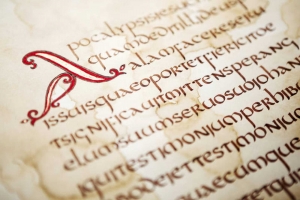 Apocalypsisiesu
quamdeditillideusp
alamfacereserui
issuisquaeoportetfiericitoe
tsignificauitmittensperang
elumsuumseruosuoiohan
iquitestimoniumperhib
odeiettestimonium
quaecumque